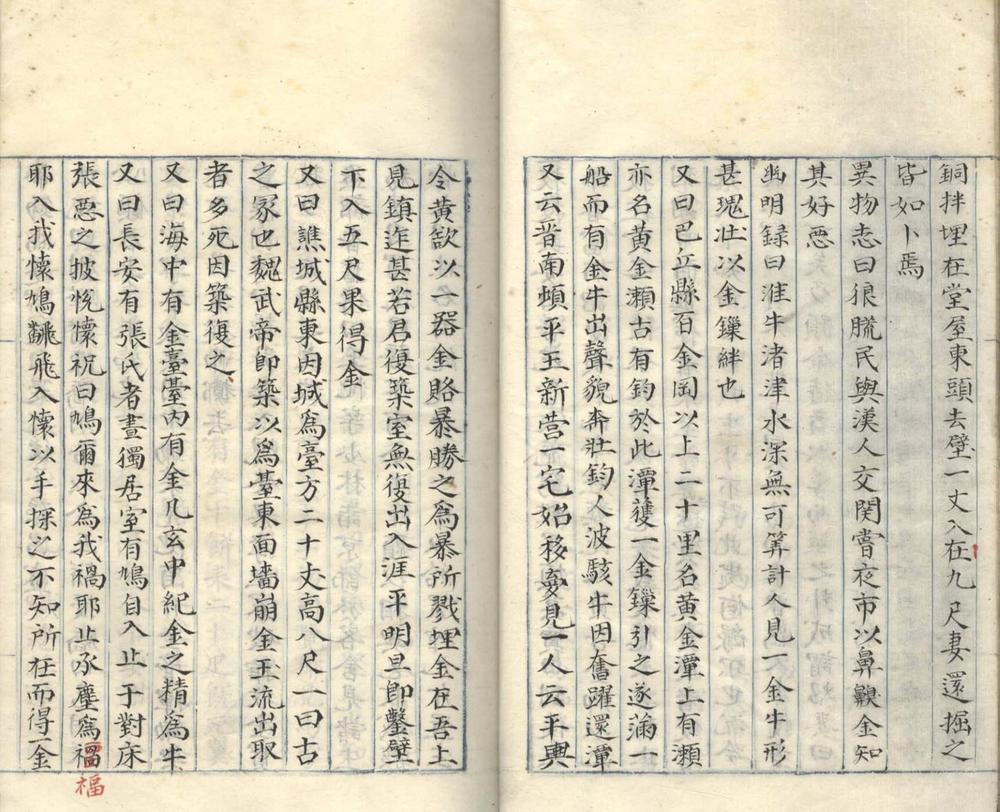 銅拌埋在堂屋東頭去壁一丈入在九尺妻還掘之
皆如卜焉
異物志曰狼䐁民與漢人交関嘗夜市以鼻齅金知
其好惡
幽明録曰淮牛渚津水深無可筭計人見一金牛形
甚瑰壮以金鏁絆也
又曰巴丘縣百金岡以上二十里名黄金潭上有瀬
亦名黄金瀬古有鈞於此潭獲一金鏁引之遂滿一
船而有金牛出聲貌奔壯鈞人波駭牛因奮躍還潭
又云晋南頓平王新营一宅始移夢見一人云平輿
令黄歆以一器金賂暴勝之爲暴所戮埋金在吾上
見鎮迮甚若君復築室無復出入涯平明旦即鑿壁
下入五尺果得金
又曰譙城縣東因城爲臺方二十丈高八尺一曰古
之冢也魏武帝即築以爲臺東面墻崩金玉流出取
者多死因築復之
又曰海中有金臺臺内有金几玄中紀金之精爲牛
又曰長安有張氏者晝獨居室有鳩自入止于對床
張惡之披恱懷祝曰鳩爾來爲我禍耶止承塵爲福
耶入我懷鳩飜飛入懷以手探之不知所在而得一金
福